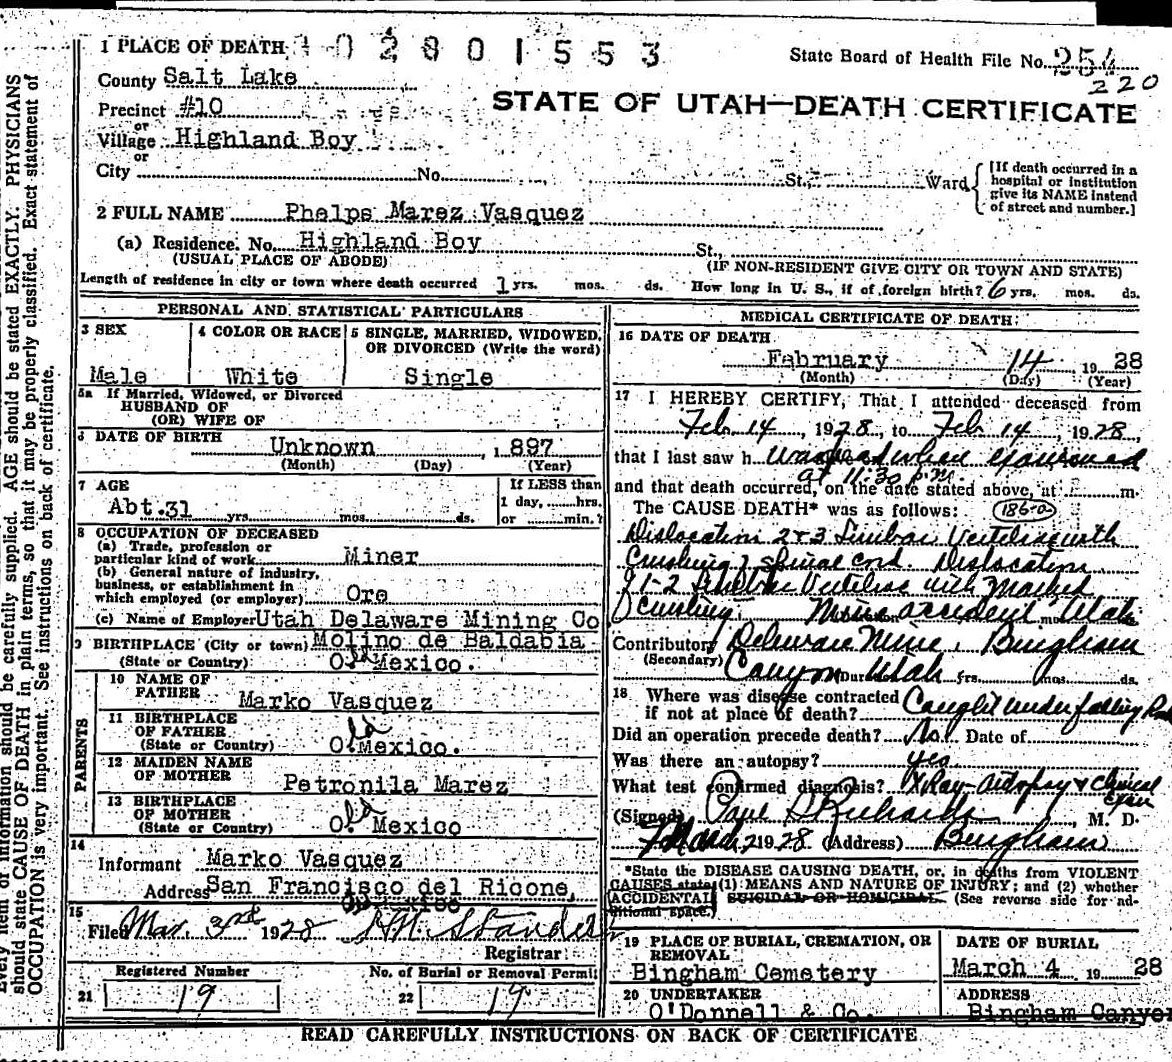 1 PLACE OF DEATH 102801553
State Board of Health File No. 254
220
County Salt Lake
Precinct #10
or
Village Highland Boy
or
City No. St., Ward
[If death occurred in a hospital or institution give its NAME instead of street and number.]
STATE OF UTAH—DEATH CERTIFICATE
2 FULL NAME Phelps Marez Vasquez
(a) Residence. No. Highland Boy St.,
(USUAL PLACE OF ABODE) (IF NON-RESIDENT GIVE CITY OR TOWN AND STATE)
Length of residence in city or town where death occurred 1 yrs. mos. ds. How long in U. S., if of foreign birth? 6 yrs. mos. ds.
PERSONAL AND STATISTICAL PARTICULARS
3 SEX 4 COLOR OR RACE 5 SINGLE, MARRIED, WIDOWED, OR DIVORCED (Write the word)
Male White Single
5a If Married, Widowed, or Divorced
HUSBAND OF
(OR) WIFE OF
6 DATE OF BIRTH Unknown, 1897
(Month) (Day) (Year)
7 AGE
Abt. 31 yrs. mos. ds.
If LESS than
1 day, hrs.
or min.?
8 OCCUPATION OF DECEASED
(a) Trade, profession or
particular kind of work Miner
(b) General nature of industry,
business, or establishment in
which employed (or employer) Ore
(c) Name of Employer Utah Delaware Mining Co
9 BIRTHPLACE (City or town) Molino de Baldabia
(State or Country) Old Mexico.
PARENTS
10 NAME OF
FATHER Marko Vasquez
11 BIRTHPLACE
OF FATHER
(State or Country) Old Mexico.
12 MAIDEN NAME
OF MOTHER Petronila Marez
13 BIRTHPLACE
OF MOTHER
(State or Country) Old Mexico
14
Informant Marko Vasquez
Address San Francisco del Ricone,
Mexico
15
Filed Mar. 3rd 1928
Registrar
Registered Number No. of Burial or Removal Permit
21 19 22 19
MEDICAL CERTIFICATE OF DEATH
16 DATE OF DEATH
February 14 1928
(Month) (Day) (Year)
17 I HEREBY CERTIFY, That I attended deceased from
Feb 14, 1928, to Feb 14, 1928,
that I last saw h was dead when examined
at 11:30 p.m.
and that death occurred, on the date stated above, at m.
The CAUSE DEATH* was as follows: 186-a
Dislocation 2 & 3 Lumbar Vertebra with
Crushing of spinal cord Dislocation
of 1-2 Vertebrae with Marked
crushing. Mine accident, Utah
Contributory Delaware Mine, Bingham
(Secondary) Canyon Utah Duration yrs. mos. ds.
18 Where was disease contracted
if not at place of death? Caught under falling Rock
Did an operation precede death? No. Date of
Was there an autopsy? Yes
What test confirmed diagnosis? X Ray-Autopsy & Clinical
Exam
(Signed) Paul S Richards, M. D.
March 2 1928 (Address) Bingham
*State the DISEASE CAUSING DEATH, or, in deaths from VIOLENT
CAUSES state (1) MEANS AND NATURE OF INJURY; and (2) whether
ACCIDENTAL SUICIDAL OR HOMICIDAL. (See reverse side for ad-
ditional space.)
19 PLACE OF BURIAL, CREMATION, OR
REMOVAL
Bingham Cemetery
DATE OF BURIAL
March 4 1928
20 UNDERTAKER
O'Donnell & Co.
ADDRESS
Bingham Canyon
READ CAREFULLY INSTRUCTIONS ON BACK OF CERTIFICATE
Every item of information should be carefully supplied. AGE should be stated EXACTLY. PHYSICIANS
should state CAUSE OF DEATH in plain terms, so that it may be properly classified. Exact statement of
OCCUPATION is very important. See instructions on back of certificate.